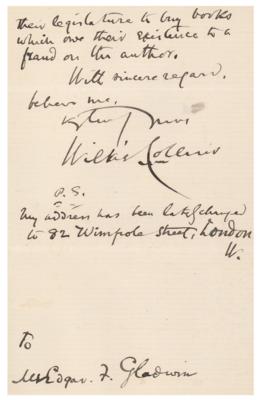 their legislature to buy books
which owe their existence to a
fraud on the author.
With sincere regard,
believe me,
Yours
Wilkie Collins
P.S.
My address has been lately changed
to 82 Wimpole Street, London
W.
To
Mr Edgar. F. Gladwin